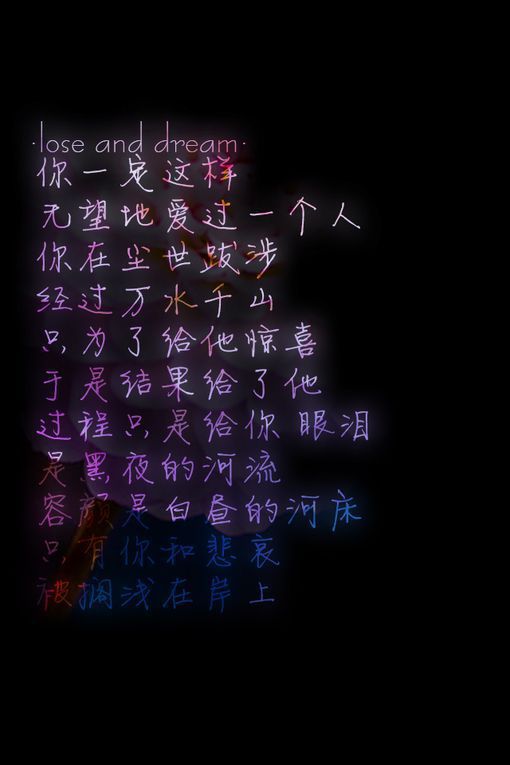 ·lose and dream·
你一定这样
无望地爱过一个人
你在尘世跋涉
经过万水千山
只为了给他惊喜
于是结果给了他
过程只是给你 眼泪
是黑夜的河流
容颜是白昼的河床
只有你和悲哀
被搁浅在岸上